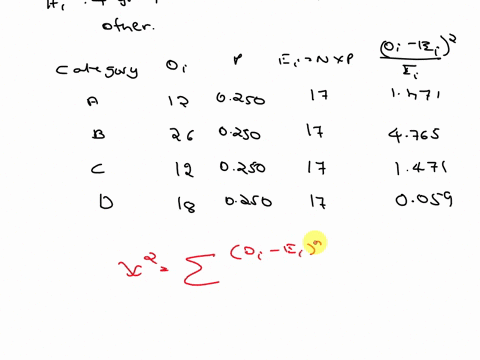 other.
Category Oi P Ei = N x P (Oi - Ei)² / Ei
A 12 0.250 17 1.471
B 26 0.250 17 4.765
C 12 0.250 17 1.471
D 18 0.250 17 0.059
χ² = Σ (Oi - Ei)²